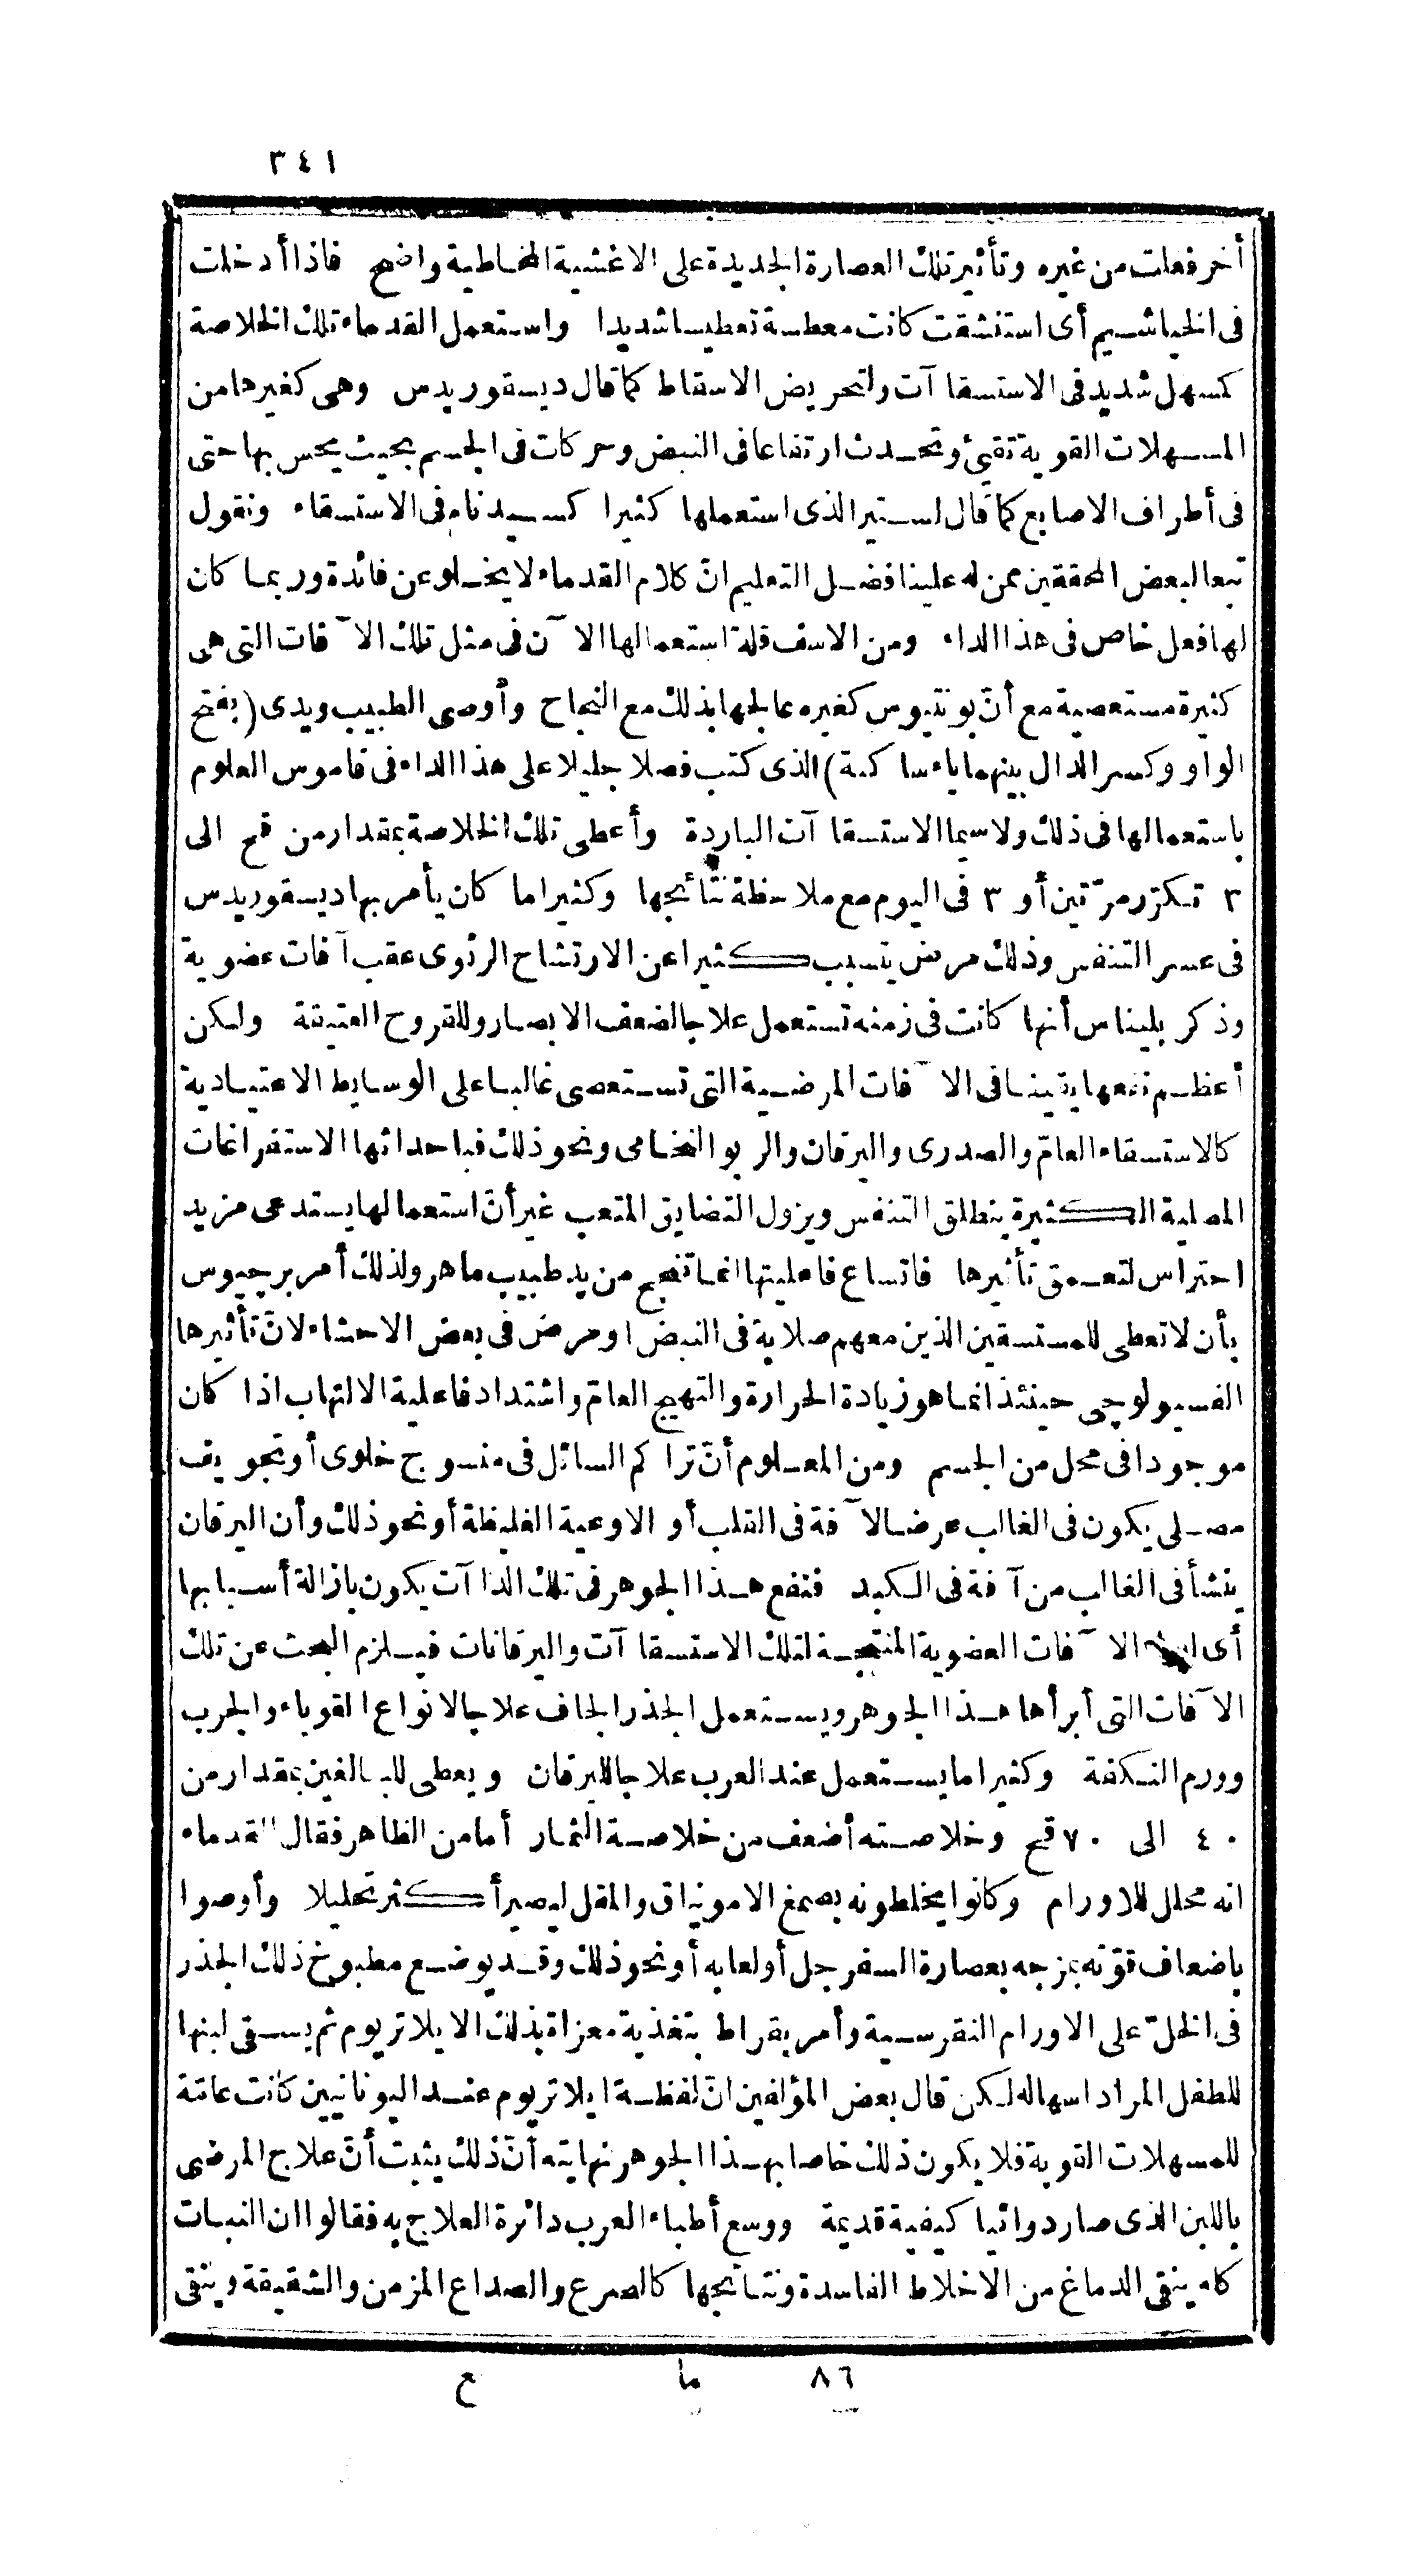 ٣٤١
أخر فعلت من غيره وتأثير تلك العصارة الجديدة على الاغشية المخاطية واضح فاذا أدخلت
فى الخياشيم أى استنشقت كانت معطسة تعطيسا شديدا واستعمل القدماء تلك الخلاصة
كمسهل شديد فى الاستسقا آت ولتحريض الاسقاط كما قال ديسقوريدس وهى كغيرها من
المسهلات القوية تقيئ وتحدث ارتفاعا فى النبض وحركات فى الجسم بحيث يحس بها حتى
فى أطراف الاصابع كما قال لستير الذى استعملها كثيرا كسيدنام فى الاستسقاء ونقول
تبعا لبعض المحققين ممن له علينا فضل التعليم انّ كلام القدماء لا يخلو عن فائدة وربما كان
لها فعل خاص فى هذا الداء ومن الاسف قلة استعمالها الا آن فى مثل تلك الا آفات التى هى
كثيرة مستعصية مع أنّ بونتيوس كغيره عالجها بذلك مع النجاح وأوصى الطبيب ويدى (بفتح
الواو وكسر الدال بينهما ياء ساكنة) الذى كتب فصلا جليلا على هذا الداء فى قاموس العلوم
باستعمالها فى ذلك ولاسيما الاستسقا آت الباردة وأعطى تلك الخلاصة بمقدار من قمح الى
٣ تكرّر مرّتين أو ٣ فى اليوم مع ملاحظة نتائجها وكثيرا ما كان يأمر بها ديسقوريدس
فى عسر التنفس وذلك مرض يتسبب كثيرا عن الارتشاح الرئوى عقب آفات عضوية
وذكر بليناس أنها كانت فى زمنه تستعمل علاجا لضعف الابصار وللقروح العتيقة ولكن
أعظم نفعها يقينا فى الا آفات المرضية التى تستعصى غالبا على الوسايط الاعتيادية
كالاستسقاء العامّ والصدرى واليرقان والربو النخامى ونحو ذلك فباحداثها الاستفراغات
المصلية الكثيرة ينطلق التنفس ويزول التضايق المتعب غير أنّ استعمالها يستدعى مزيد
احتراس لتعمق تأثيرها فاتساع فاعليتها انما تنجح من يد طبيب ماهر ولذلك أمر برجيوس
بأن لا تعطى للمستسقين الذين معهم صلابة فى النبض او مرض فى بعض الاحشاء لانّ تأثيرها
الفسيولوجى حينئذ انما هو زيادة الحرارة والتهيج العامّ واشتداد فاعلية الالتهاب اذا كان
موجودا فى محل من الجسم ومن المعلوم أنّ تراكم السائل فى منسوج خلوى أو تجويف
مصلى يكون فى الغالب عرضا لا آفة فى القلب أو الاوعية الغليظة أو نحو ذلك وأن اليرقان
ينشأ فى الغالب من آفة فى الكبد فنفع هذا الجوهر فى تلك الدا آت يكون بازالة أسبابها
أى الا آفات العضوية المنتجة لتلك الاستسقا آت واليرقانات فيلزم البحث عن تلك
الا آفات التى أبرأها هذا الجوهر ويستعمل الجذر الجاف علاجا لانواع القوباء والجرب
وورم النكفة وكثيرا ما يستعمل عند العرب علاجا لليرقان ويعطى للبالغين بمقدار من
٤٠ الى ٧٠ قمح وخلاصته أضعف من خلاصة الثمار أما من الظاهر فقال القدماء
انه محلل للاورام وكانوا يخلطونه بصمغ الامونياق والمقل ليصير أكثر تحليلا وأوصوا
باضعاف قوّته بمزجه بعصارة السفرجل أو لعابه أو نحو ذلك وقد يوضع مطبوخ ذلك الجذر
فى الخلّ على الاورام النقرسية وأمر بقراط بتغذية معزاة بذلك الايلاتريوم ثم يسقى لبنها
للطفل المراد اسهاله لكن قال بعض المؤلفين انّ لفظة ايلاتريوم عند اليونانيين كانت عامّة
للمسهلات القوية فلا يكون ذلك خاصا بهذا الجوهر نهايته أنّ ذلك يثبت أنّ علاج المرضى
باللبن الذى صار دوائيا كيفية قديمة ووسع أطباء العرب دائرة العلاج به فقالوا ان النبات
كله ينقى الدماغ من الاخلاط الفاسدة ونتائجها كالصرع والصداع المزمن والشقيقة وينقى
٨٦ ما ع